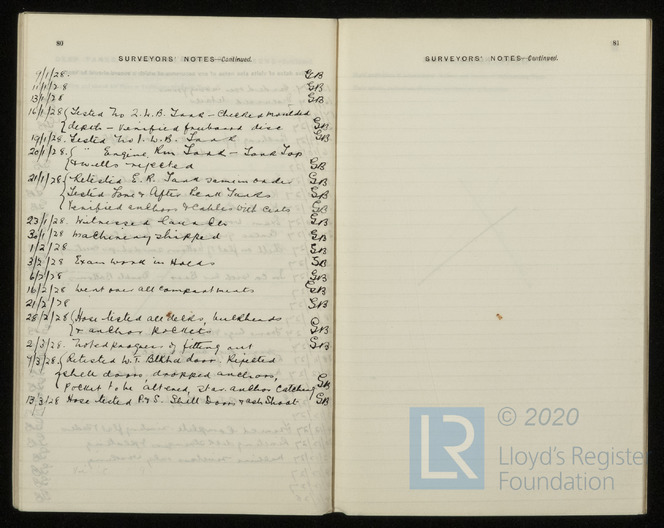 80
SURVEYORS' NOTES—Continued.
7/1/28. GB
11/1/28 GB
13/1/28 GB
16/1/28 Tested No 2. W.B. Tank – Checked moulded
depth – Verified freeboard disc GB
19/1/28. Tested No 1. W.B. Tank GB
20/1/28. " Engine Rm Tank – Tank Top
& wells rejected GB
21/1/28 Retested E.R. Tank same in order GB
Tested Fore & After Peak Tanks GB
Verified anchors & Cables with Certs GB
23/1/28. Witnessed GB
30/1/28 Machinery shipped GB
1/2/28 GB
3/2/28 Exam work in Holds GB
6/2/28 GB
16/2/28 Went over all compartments GB
21/2/28 GB
28/2/28 Hose tested all decks, bulkheads
& anchor pockets GB
2/3/28. Noted progress of fitting out GB
7/3/28. Retested W.T. Blkhd door. Rejected
shell doors dropped anchors,
Pocket to be altered, star. anchor catching GB
13/3/28 Hose tested P & S. Shell Doors & ash Shoot. GB
81
SURVEYORS' NOTES—Continued.
LR
© 2020
Lloyd's Register
Foundation